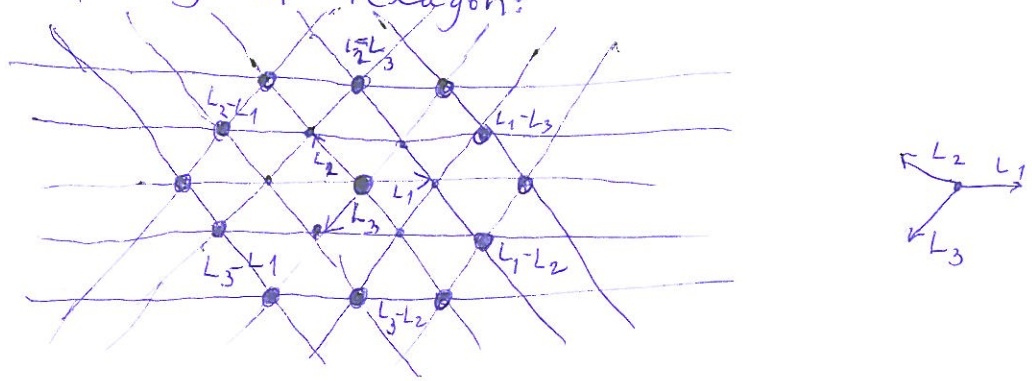 hexagon:
L₂-L₃
L₂-L₁
L₁-L₃
L₂
L₁
L₃
L₃-L₁
L₁-L₂
L₃-L₂
L₂
L₁
L₃